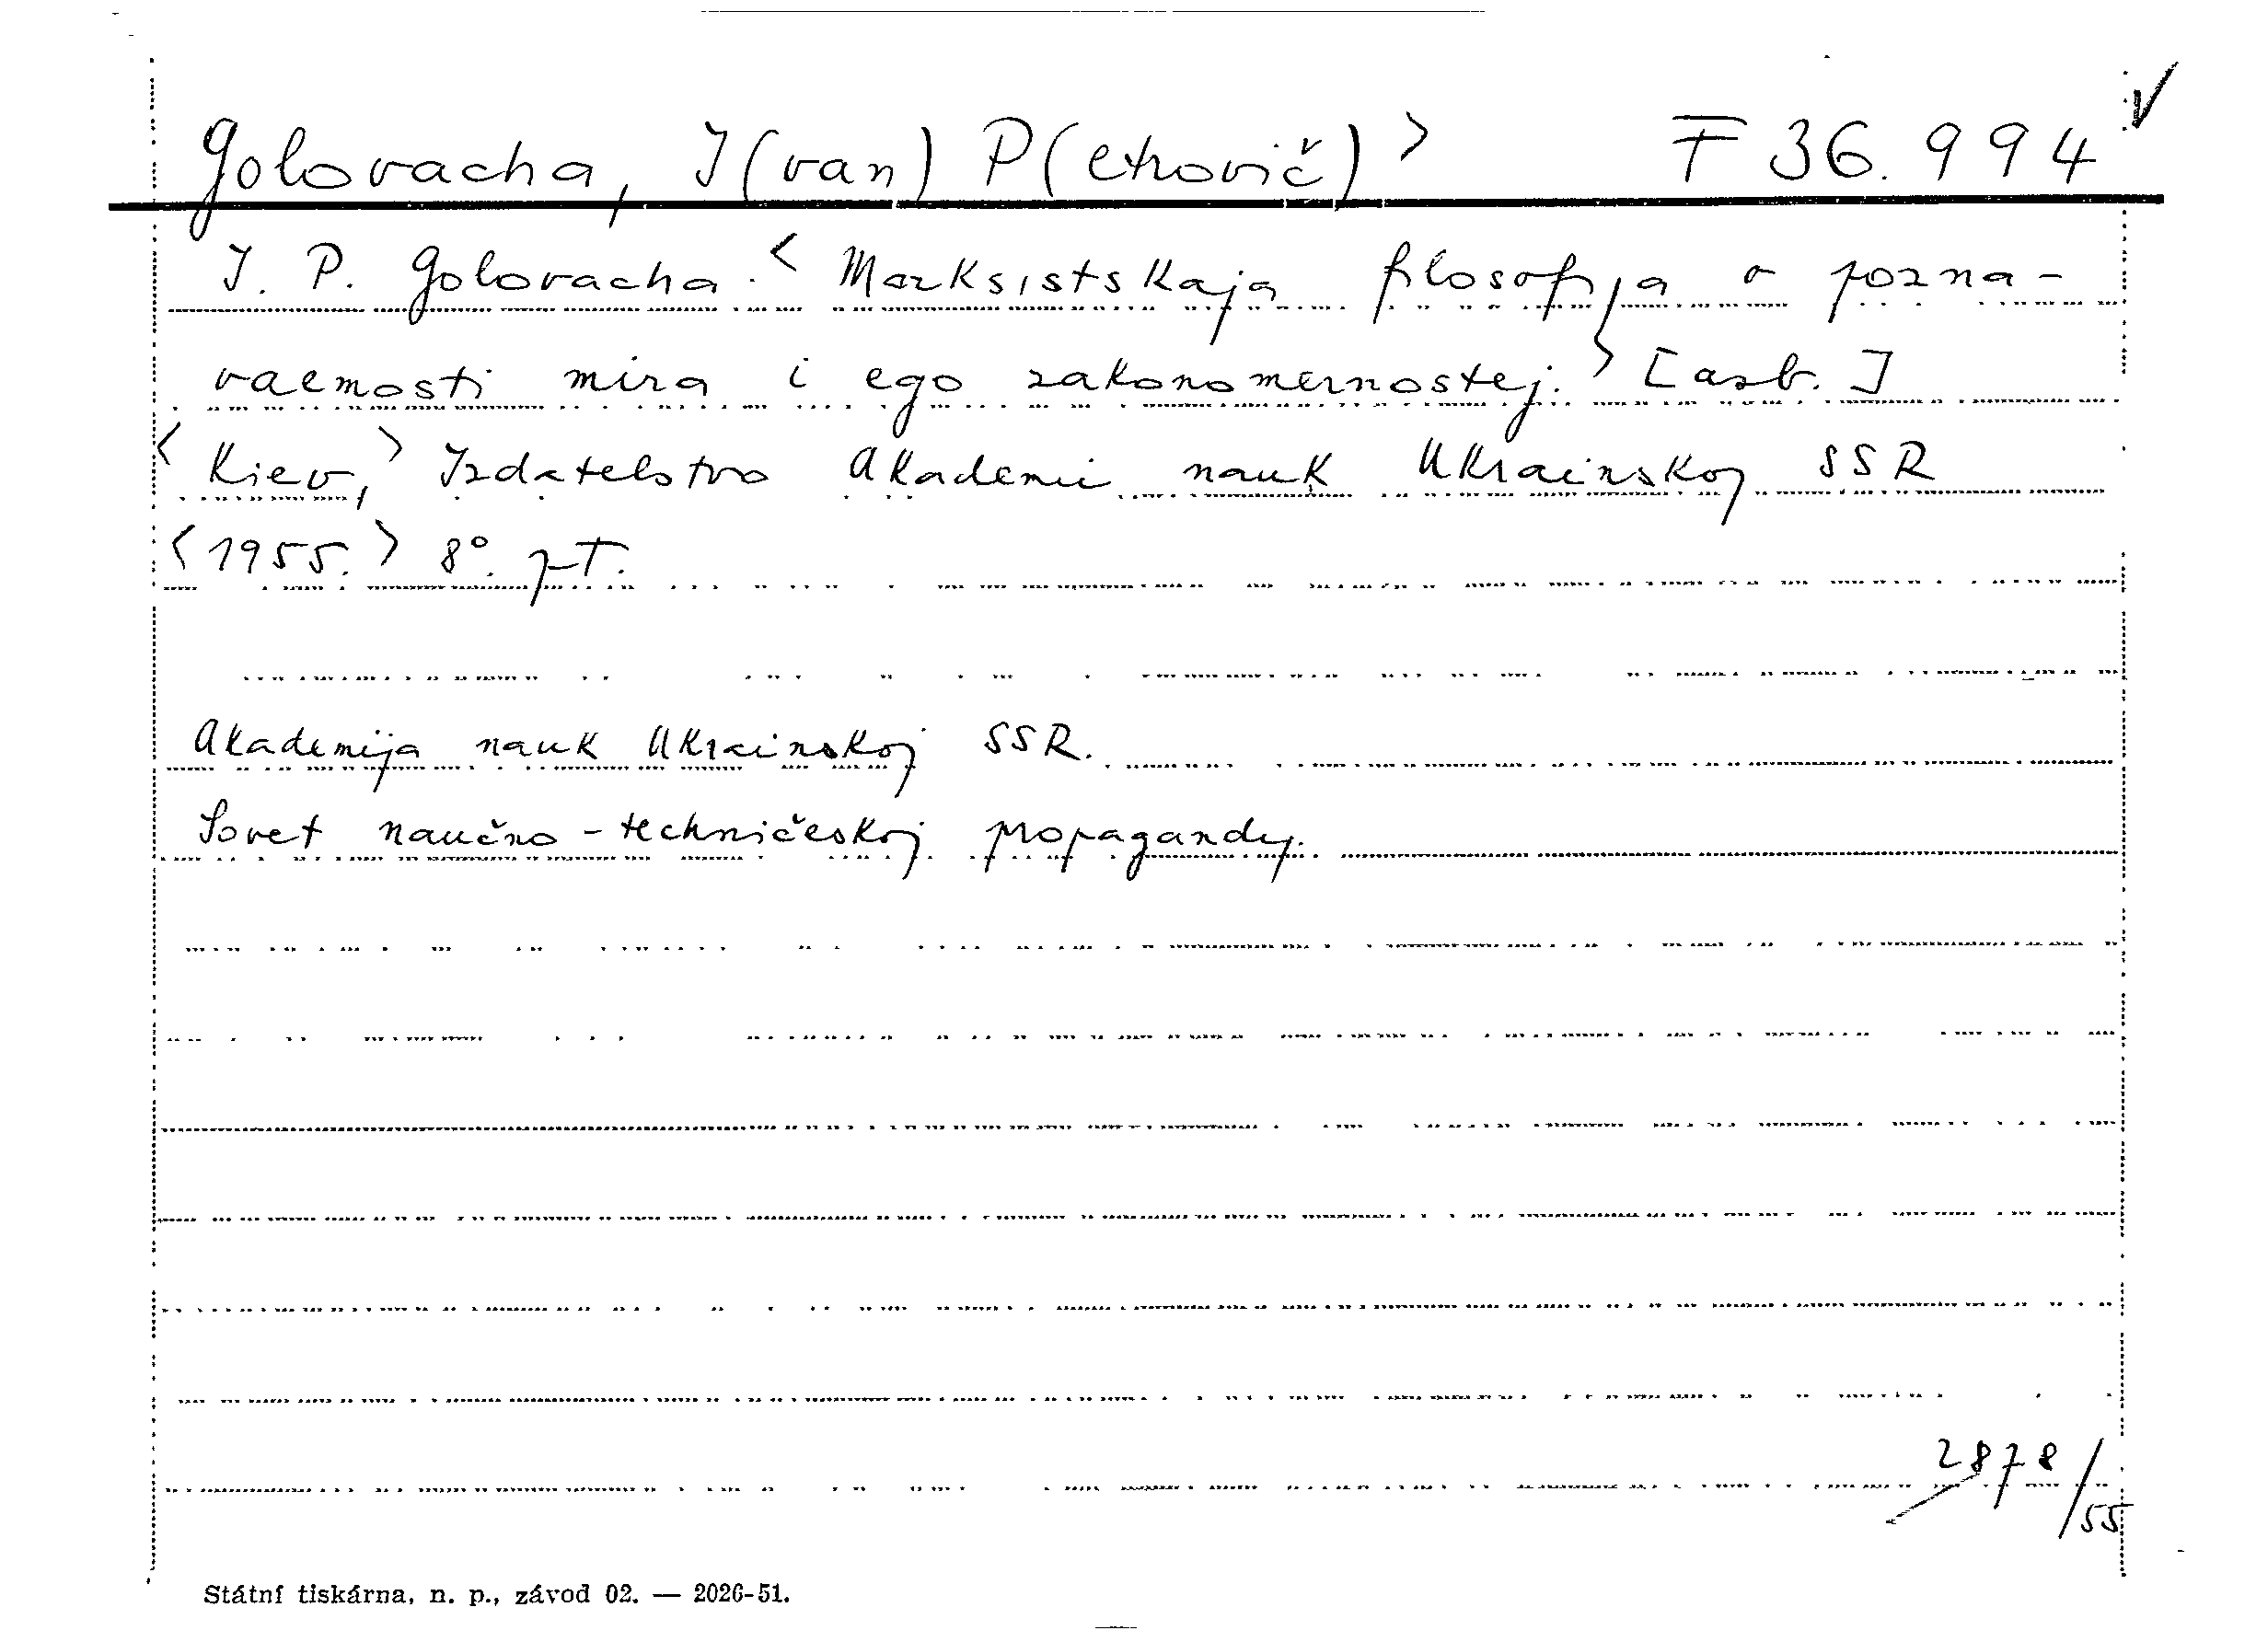 Golovacha, I(van) P(etrovič)> F 36.994
I. P. Golovacha. <Marksistskaja filosofija o pozna-
vaemosti mira i ego zakonomernostej.> [azb.]
<Kiev,> Izdatelstvo Akademii nauk Ukrainskoj SSR
<1955.> 8°. pT.
Akademija nauk Ukrainskoj SSR.
Sovet naučno-techničeskoj propagandy.
2878/55
Státní tiskárna, n. p., závod 02. — 2026-51.